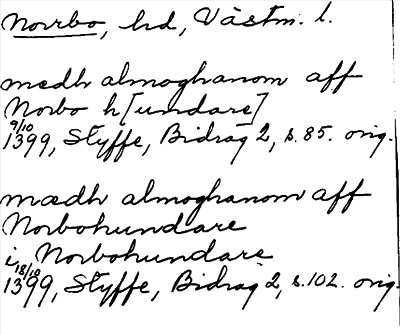 Norrbo, hd, Västm. l.
medh almoghanom aff
Norbo h[undare]
9/10
1399, Styffe, Bidrag 2, s. 85. orig.
mædh almoghanom aff
Norbohundare
i Norbohundare
18/10
1399, Styffe, Bidrag 2, s. 102. orig.